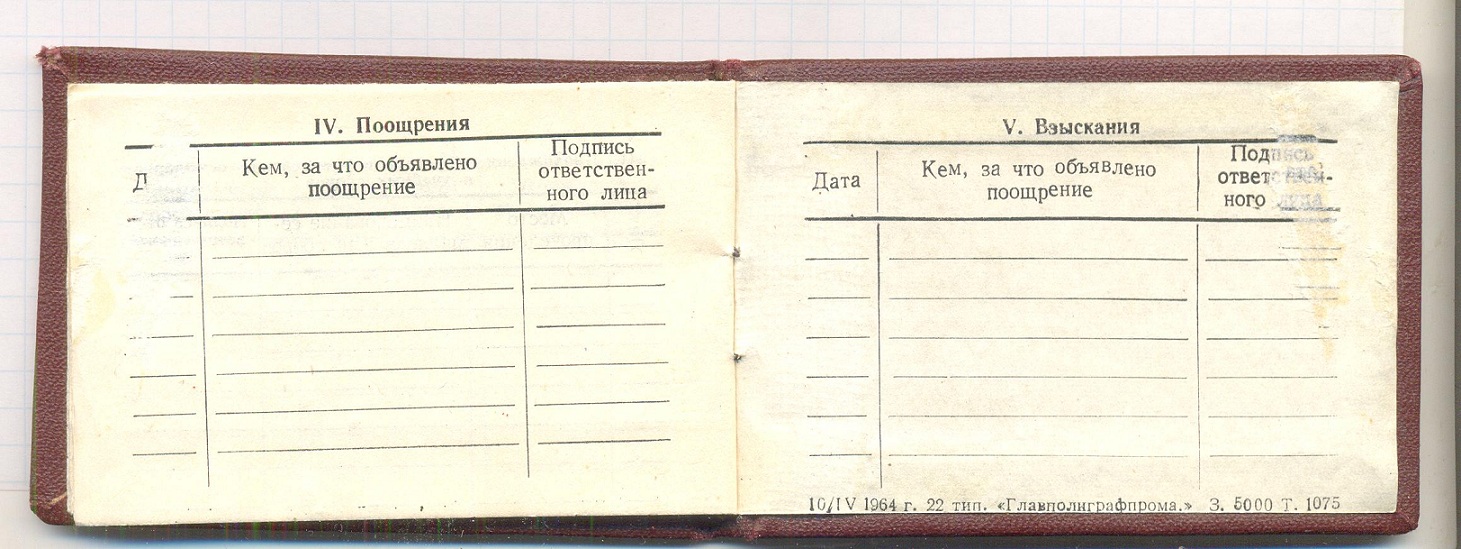 IV. Поощрения
Д
Кем, за что объявлено
поощрение
Подпись
ответствен-
ного лица
V. Взыскания
Дата
Кем, за что объявлено
поощрение
Подпись
ответствен-
ного лица
10/IV 1964 г. 22 тип. «Главполиграфпрома.» З. 5000 Т. 1075